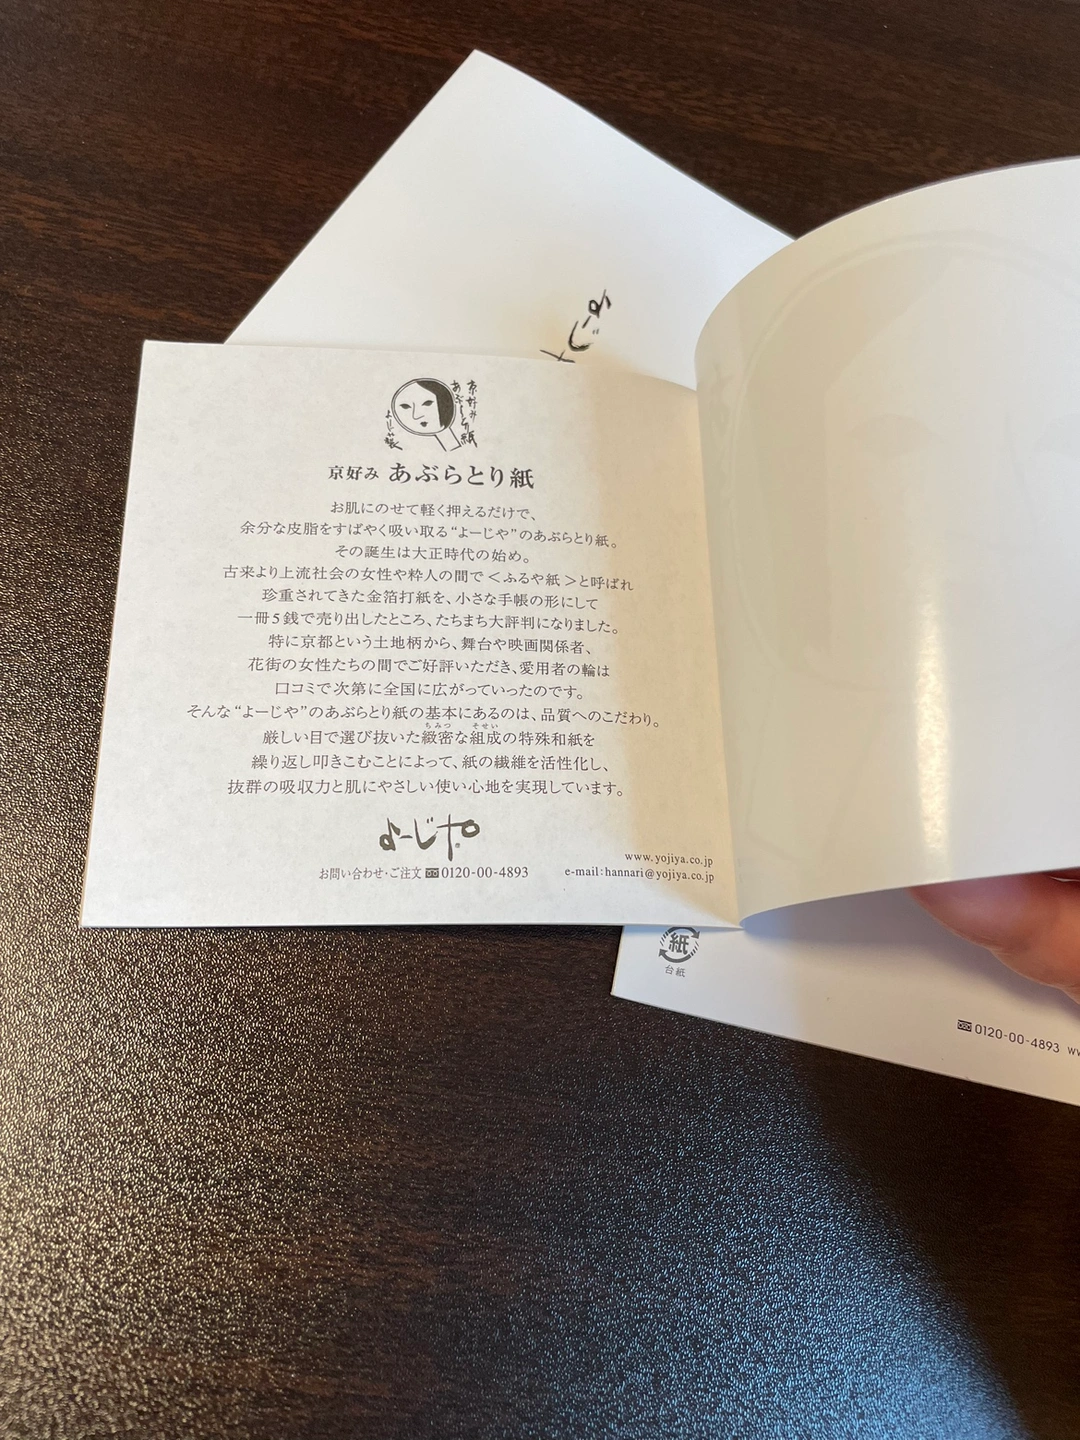 よーじ
京好み
あぶらとり紙
よーじや
京好み あぶらとり紙
お肌にのせて軽く押えるだけで、
余分な皮脂をすばやく吸い取る“よーじや”のあぶらとり紙。
その誕生は大正時代の始め。
古来より上流社会の女性や粋人の間で＜ふるや紙＞と呼ばれ
珍重されてきた金箔打紙を、小さな手帳の形にして
一冊5銭で売り出したところ、たちまち大評判になりました。
特に京都という土地柄から、舞台や映画関係者、
花街の女性たちの間でご好評いただき、愛用者の輪は
口コミで次第に全国に広がっていったのです。
そんな“よーじや”のあぶらとり紙の基本にあるのは、品質へのこだわり。
ちみつ そせい
厳しい目で選び抜いた緻密な組成の特殊和紙を
繰り返し叩きこむことによって、紙の繊維を活性化し、
抜群の吸収力と肌にやさしい使い心地を実現しています。
よーじや®
www.yojiya.co.jp
お問い合わせ・ご注文 0120-00-4893 e-mail:hannari@yojiya.co.jp
紙
台紙
0120-00-4893